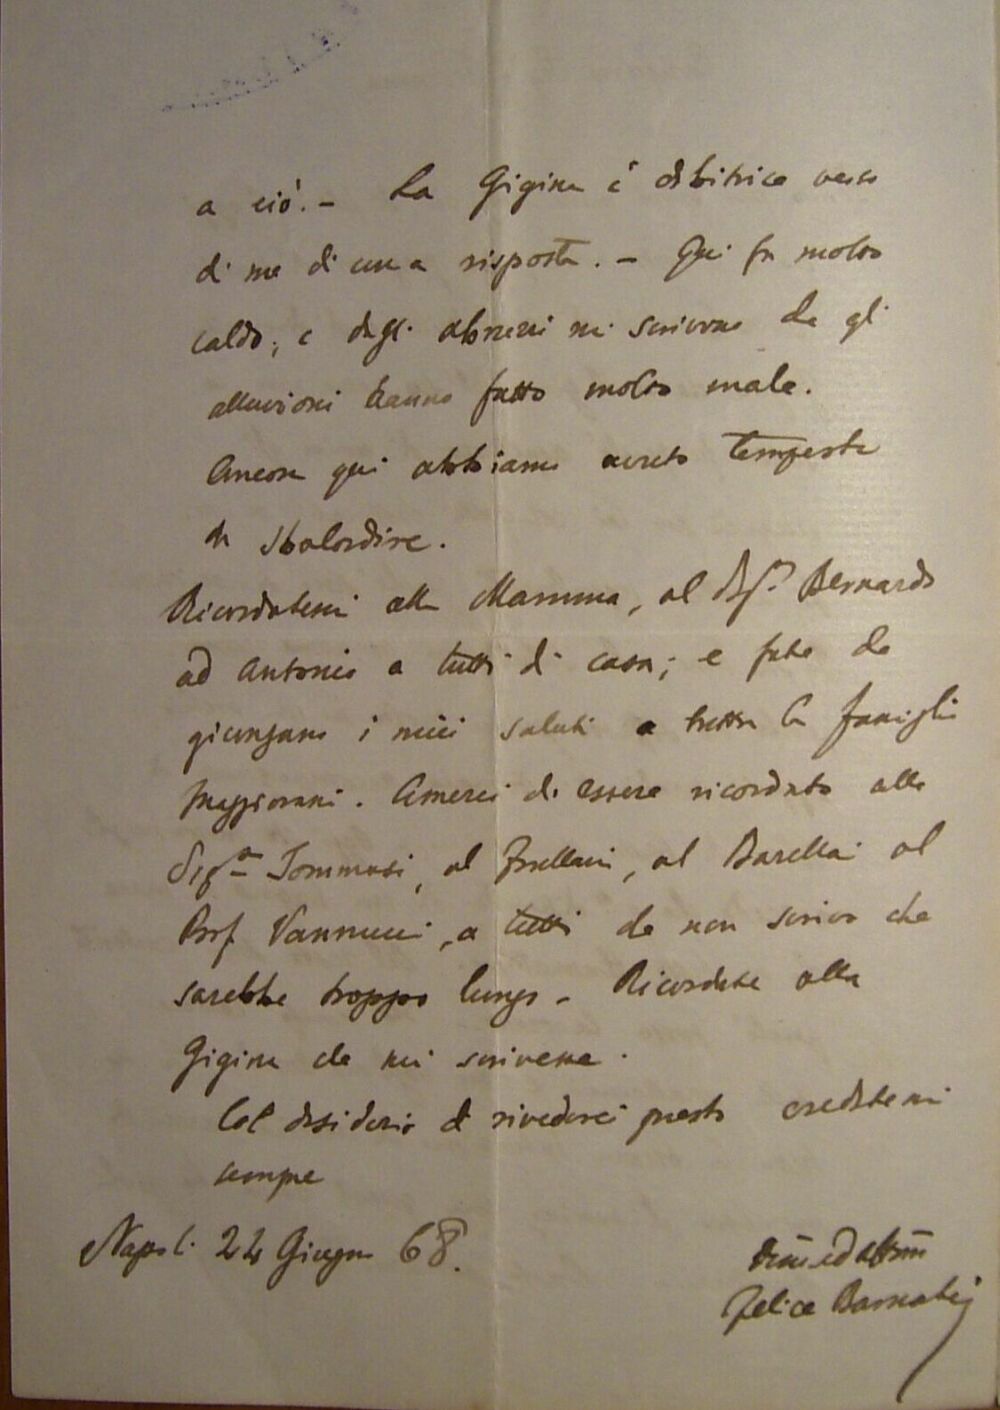 a ciò. – La Gigina è debitrice verso
di me di una risposta. – Qui fa molto
caldo, e dagli abruzzi mi scrivono che gl
alluvioni hanno fatto molto male.
Ancora qui abbiamo avuto tempeste
da sbalordire.
Ricordatemi alla Mamma, al Bernardo
ad Antonio a tutti di casa; e fate che
giungano i miei saluti a tutta la famiglia
Maggiorani. Amerei di essere ricordato alla
Sigra Tommasi, al, al Barellai al
Prof Vannucci, a tutti che non scrivo che
sarebbe troppo lungo – Ricordate alla
Gigina che mi scrivesse.
Col desiderio di rivederci presto credetemi
sempre
Napoli 22 Giugno 68.
Felice Barnabei